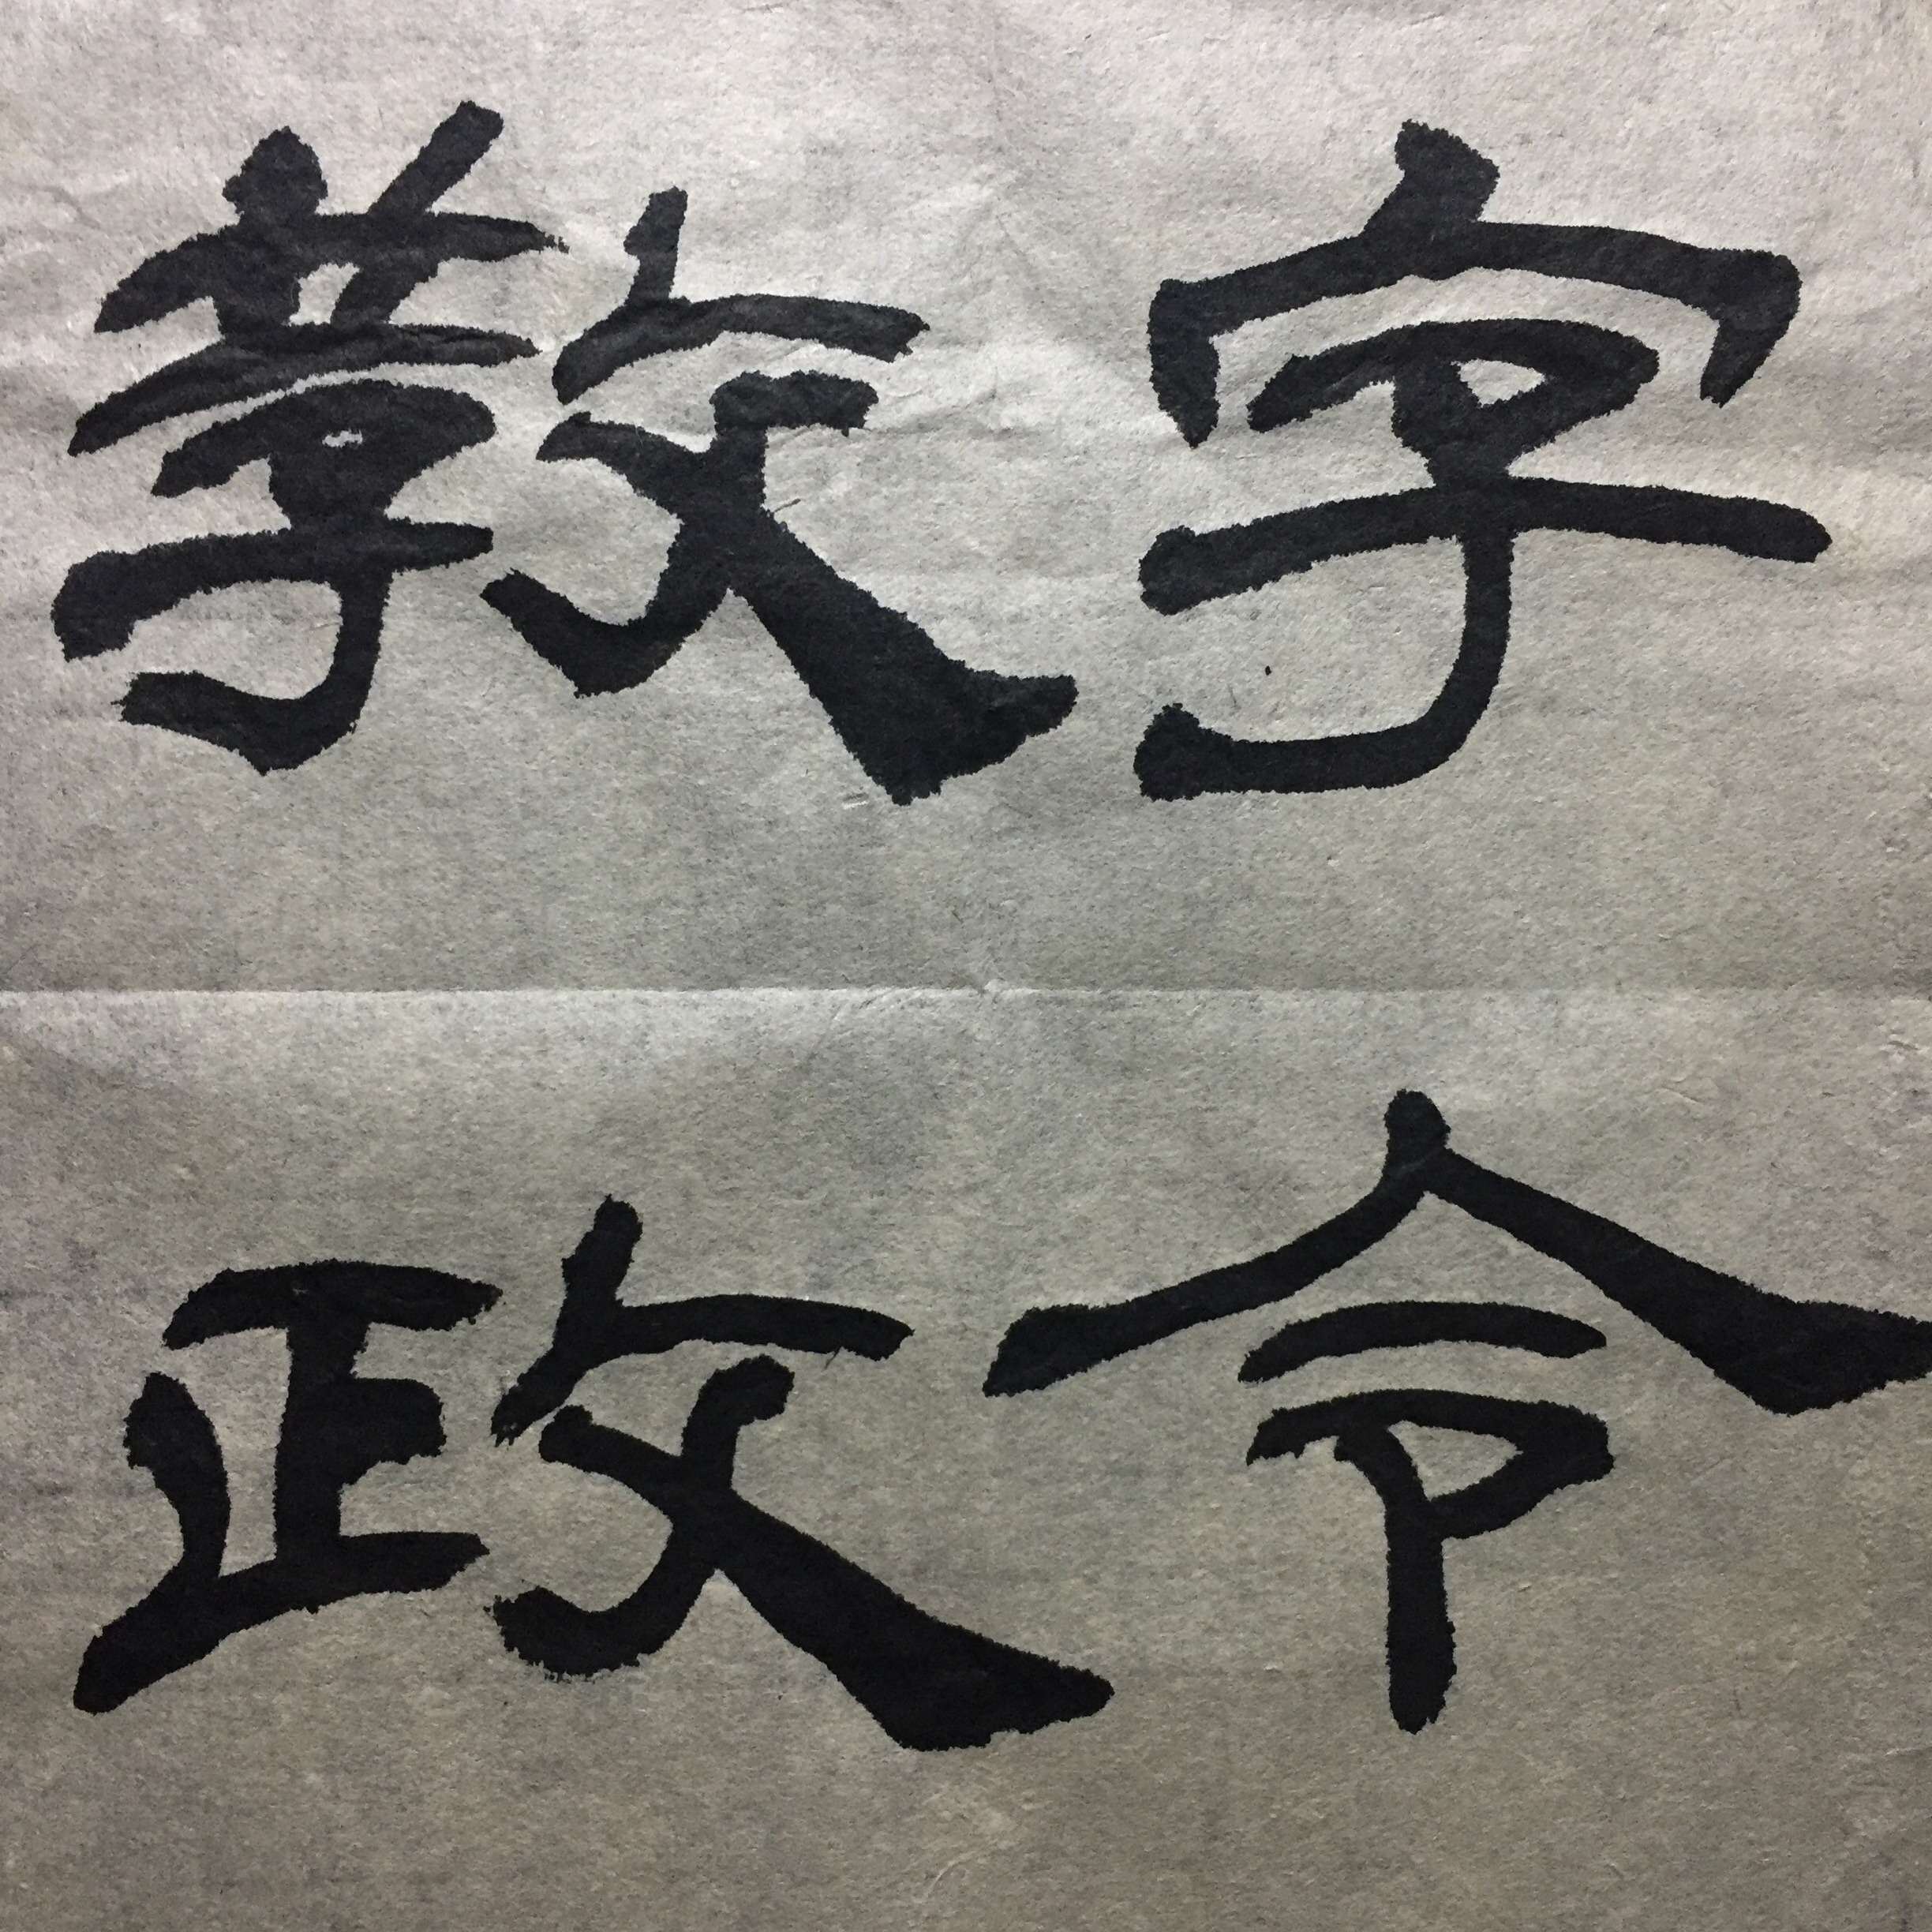 教字
政令